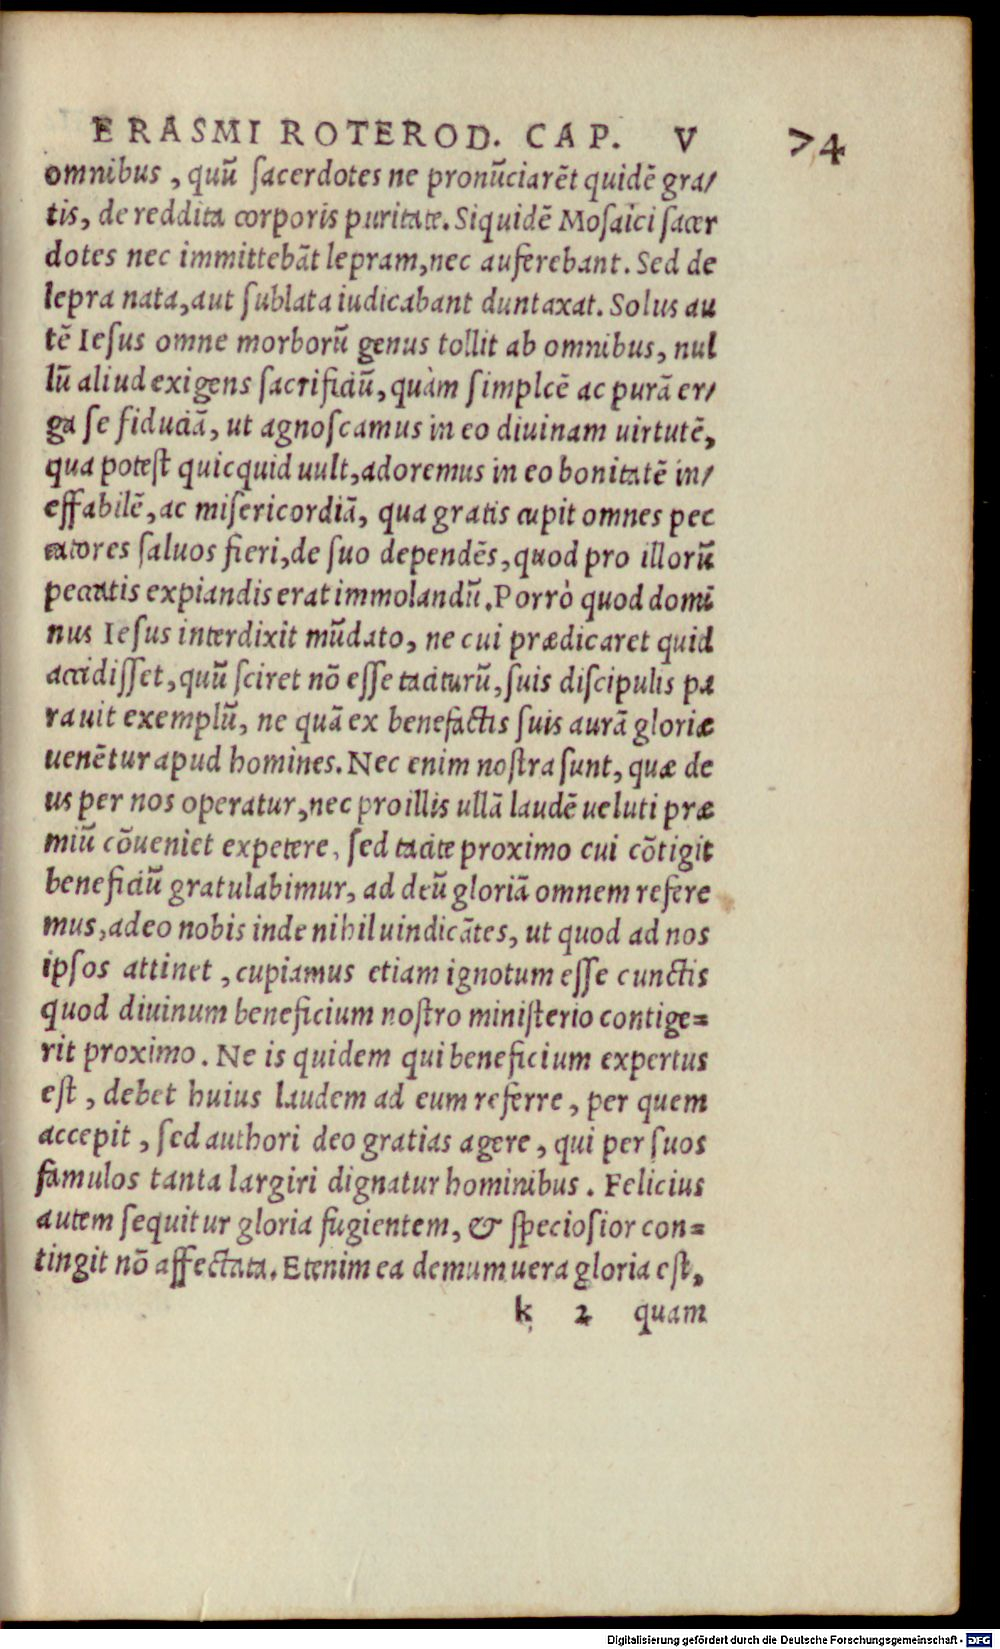 ERASMI ROTEROD. CAP. V 74
omnibus, quū sacerdotes ne pronūciarēt quidē gra/
tis, de reddita corporis puritate. Siquidē Mosaici sacer
dotes nec immittebāt lepram, nec auferebant. Sed de
lepra nata, aut sublata iudicabant duntaxat. Solus au
tē Iesus omne morborū genus tollit ab omnibus, nul
lū aliud exigens sacrificiū, quàm simplcē ac purā er/
ga se fiduciā, ut agnoscamus in eo diuinam uirtutē,
qua potest quicquid uult, adoremus in eo bonitatē in/
effabilē, ac misericordiā, qua gratis cupit omnes pec
catores saluos fieri, de suo dependēs, quod pro illorū
peccatis expiandis erat immolandū. Porrò quod domi
nus Iesus interdixit mūdato, ne cui prædicaret quid
accidisset, quū sciret nō esse taciturū, suis discipulis pa
rauit exemplū, ne quā ex benefactis suis aurā gloriæ
uenētur apud homines. Nec enim nostra sunt, quæ de
us per nos operatur, nec pro illis ullā laudē ueluti præ
miū cōueniet expetere, sed tacite proximo cui cōtigit
beneficiū gratulabimur, ad deū gloriā omnem refere
mus, adeo nobis inde nihil uindicātes, ut quod ad nos
ipsos attinet, cupiamus etiam ignotum esse cunctis
quod diuinum beneficium nostro ministerio contige=
rit proximo. Ne is quidem qui beneficium expertus
est, debet huius laudem ad eum referre, per quem
accepit, sed authori deo gratias agere, qui per suos
famulos tanta largiri dignatur hominibus. Felicius
autem sequitur gloria fugientem, & speciosior con=
tingit nō affectata. Etenim ea demum uera gloria est,
k 2 quam
Digitalisierung gefördert durch die Deutsche Forschungsgemeinschaft - DFG